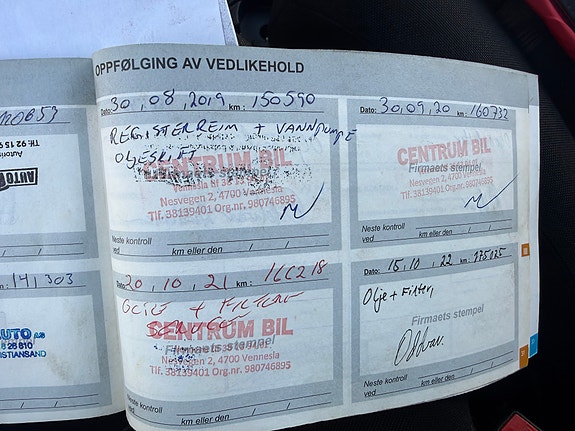 OPPFØLGING AV VEDLIKEHOLD
Dato: 30, 08, 2019 km: 150590
REGISTERREIM + VANNPUMPE
OLJESKIFT
CENTRUM BIL
Firmaets stempel
Vennesla
Nesvegen 2, 4700 Vennesla
Tlf. 38139401 Org.nr. 980746895
Neste kontroll
ved km eller den / /
Dato: 30, 09, 20 km: 160732
CENTRUM BIL
Firmaets stempel
Nesvegen 2, 4700 Vennesla
Tlf. 38139401 Org.nr. 980746895
Neste kontroll
ved km eller den / /
20, 10, 21 km: 166218
OLJE + FILTER
CENTRUM BIL
Firmaets stempel
Nesvegen 2, 4700 Vennesla
Tlf. 38139401 Org.nr. 980746895
Neste kontroll
ved km eller den / /
Dato: 15, 10, 22 km:
Olje + Filter,
Firmaets stempel
Neste kontroll
ved km eller den / /
Tlf. 92 15
AUTO
km eller den / /
km: 141,303
AUTO AS
km eller den / /